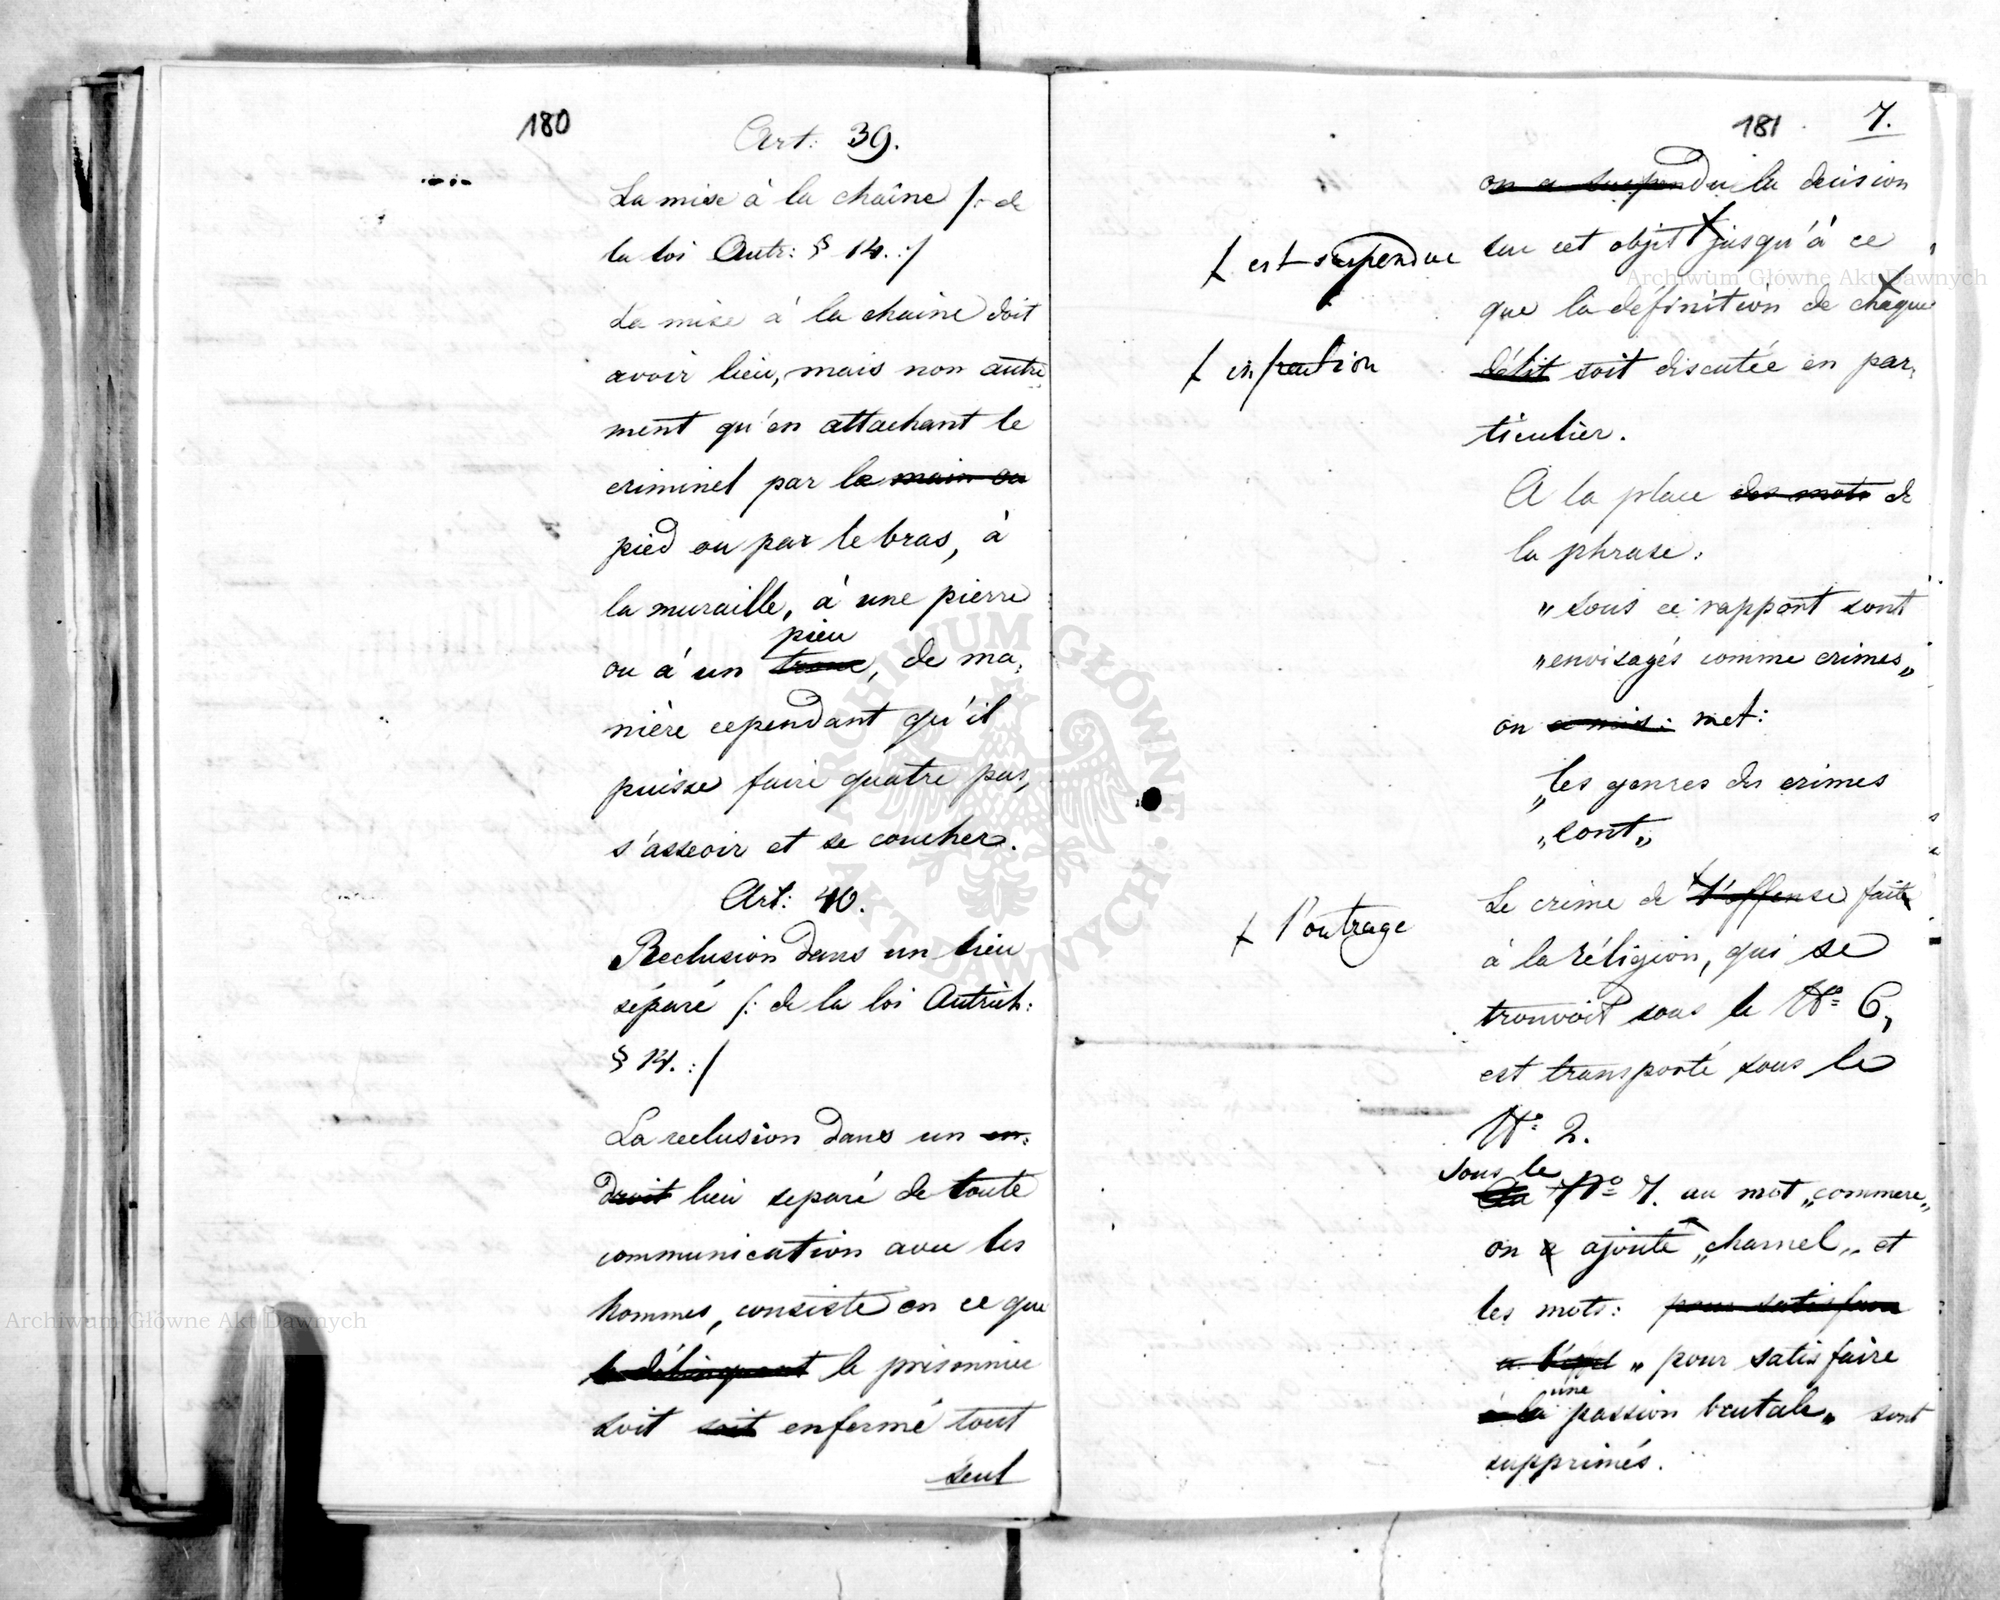 180
Art: 39.
La mise à la chaîne /: de
la loi Autr: § 14. :/
La mise à la chaine doit
avoir lieu, mais non autre
ment qu'en attachant le
criminel par le main ou
pied ou par le bras, à
la muraille, à une pierre
pieu
ou à un tronc, de ma,
nière cependant qu'il
puisse faire quatre pas,
s'asseoir et se coucher.
Art: 40.
Reclusion dans un lieu
séparé /: de la loi Autrich:
§ 14. :/
La reclusion dans un en,
droit lieu separé de toute
communication avec les
hommes, consiste en ce que
le délinquant le prisonnier
soit soit enfermé tout
seul
181 7.
on a suspendu la decision
sur cet objet jusqu'à ce
est suspendue
que la définition de chaque
infraction
délit soit discutée en par,
ticulier.
A la place des mots de
la phrase:
„ sous ce rapport sont
„ envisagés comme crimes„
on a mis: met:
„les genres des crimes
„sont„
Le crime de l'offense faite
l'outrage
à la réligion, qui se
trouvoit sous le No 6,
est transporté sous le
No 2.
sous le
Au No 7. au mot „commerc„
on a ajoute „charnel„ et
les mots: pour satisfaire
a l'égd „ pour satisfaire
une
à la passion brutale„ sont
supprimés.
Archiwum Główne Akt Dawnych
Archiwum Główne Akt Dawnych
ARCHIWUM GŁÓWNE AKT DAWNYCH